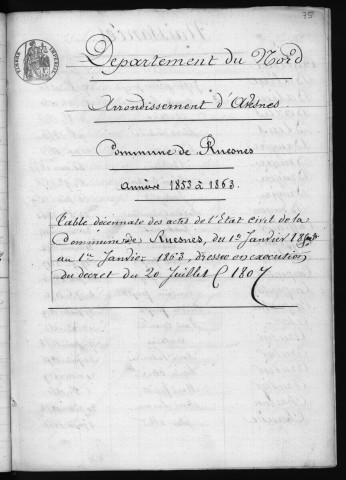 75
Departement du Nord
Arrondissement d'Avesnes.
Commune de Ruesnes
Années 1853 à 1863.
Table décennale des actes de l'Etat civil de la
Commune de Ruesnes, du 1er Janvier
au 1er Janvier 1863, dressée en exécution
du decret du 20 Juillet 1807